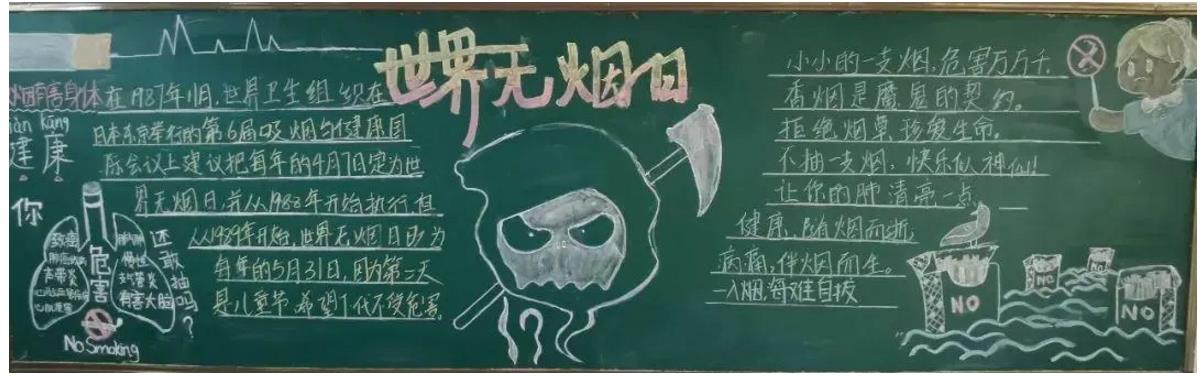 世界无烟日
吸烟有害身体
jiàn kāng
健康
你
还敢抽吗?
危害
致癌
声带炎
慢性
支气管炎
有害大脑
No Smoking
在1987年11月,世界卫生组织在
日本东京举行的第6届吸烟与健康国
际会议上建议把每年的4月7日定为世
界无烟日,并从1988年开始执行,但
从1989年开始,世界无烟日改为
每年的5月31日,因为第二天
是儿童节,希望下代不受危害
小小的一支烟,危害万万千
香烟是魔鬼的契约。
拒绝烟草,珍爱生命。
不抽一支烟,快乐似神仙!
让你的肺清亮一点
健康,随烟而逝,
病痛,伴烟而生。
一入烟,每难自拔
NO
NO
NO